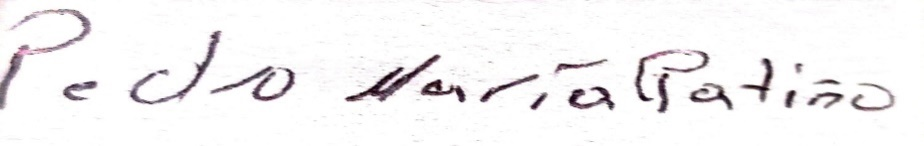 Pedro María Patiño